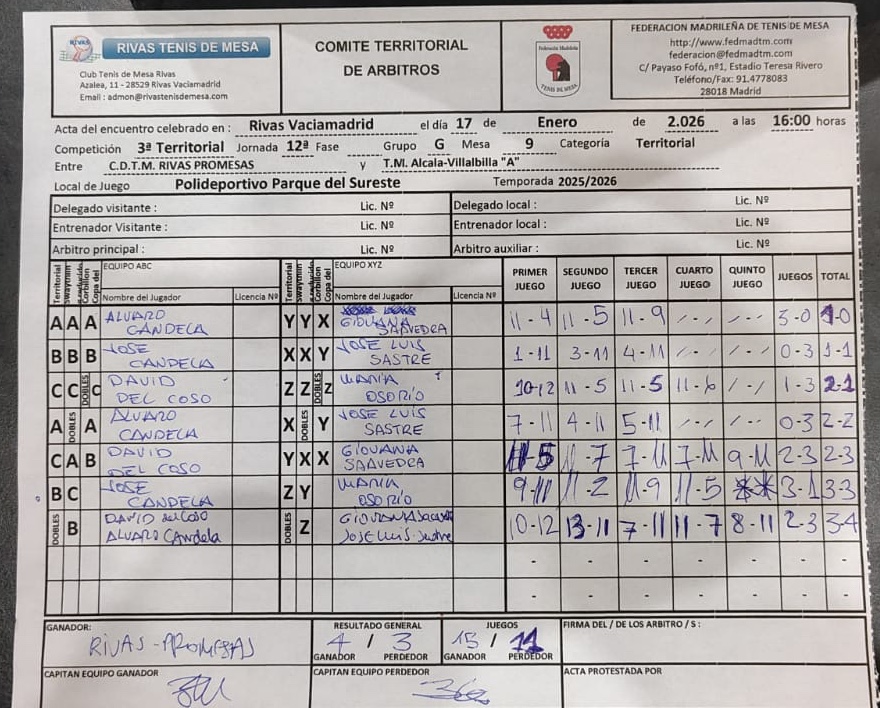 RIVAS TENIS DE MESA
Club Tenis de Mesa Rivas
Azalea, 11 - 28529 Rivas Vaciamadrid
Email : admon@rivastenisdemesa.com
COMITE TERRITORIAL
DE ARBITROS
Federación Madrileña
TENIS DE MESA
FEDERACION MADRILEÑA DE TENIS DE MESA
http://www.fedmadtm.com
federacion@fedmadtm.com
C/ Payaso Fofó, nº1, Estadio Teresa Rivero
Teléfono/Fax: 91.4778083
28018 Madrid
Acta del encuentro celebrado en : Rivas Vaciamadrid el día 17 de Enero de 2.026 a las 16:00 horas
Competición 3ª Territorial Jornada 12ª Fase Grupo G Mesa 9 Categoría Territorial
Entre C.D.T.M. RIVAS PROMESAS y T.M. Alcala-Villalbilla "A"
Local de Juego Polideportivo Parque del Sureste Temporada 2025/2026
Delegado visitante : Lic. Nº Delegado local : Lic. Nº
Entrenador Visitante : Lic. Nº Entrenador local : Lic. Nº
Arbitro principal : Lic. Nº Arbitro auxiliar : Lic. Nº
Territorial Swaythling Corbillon Copa del EQUIPO ABC Territorial Corbillon Copa del EQUIPO XYZ PRIMER JUEGO SEGUNDO JUEGO TERCER JUEGO CUARTO JUEGO QUINTO JUEGO JUEGOS TOTAL
Nombre del Jugador Licencia Nº Nombre del Jugador Licencia Nº
A A A ALVARO CANDELA Y Y X GIOVANA SAAVEDRA 11-4 11-5 11-9 -- -- 3-0 1-0
B B B JOSE CANDELA X X Y JOSE LUIS SASTRE 1-11 3-11 4-11 -- -- 0-3 1-1
C C DOBLES C DAVID DEL COSO Z Z DOBLES Z MARIA OSORIO 10-12 11-5 11-5 11-6 -- 1-3 2-1
A DOBLES A ALVARO CANDELA X DOBLES Y JOSE LUIS SASTRE 7-11 4-11 5-11 -- -- 0-3 2-2
C A B DAVID DEL COSO Y X X GIOVANA SAAVEDRA 11-5 11-7 7-11 7-11 9-11 2-3 2-3
B C JOSE CANDELA Z Y MARIA OSORIO 9-11 11-2 11-9 11-5 3-1 3-3
DOBLES B DAVID del COSO ALVARO Candela DOBLES Z GIOVANA JoseLuis Sastre 10-12 13-11 7-11 11-7 8-11 2-3 3-4
- - - - - - -
- - - - - - -
GANADOR: RIVAS-PROMESAS
RESULTADO GENERAL 4 / 3
GANADOR PERDEDOR
JUEGOS 15 / 11
GANADOR PERDEDOR
FIRMA DEL / DE LOS ARBITRO / S :
CAPITAN EQUIPO GANADOR CAPITAN EQUIPO PERDEDOR ACTA PROTESTADA POR